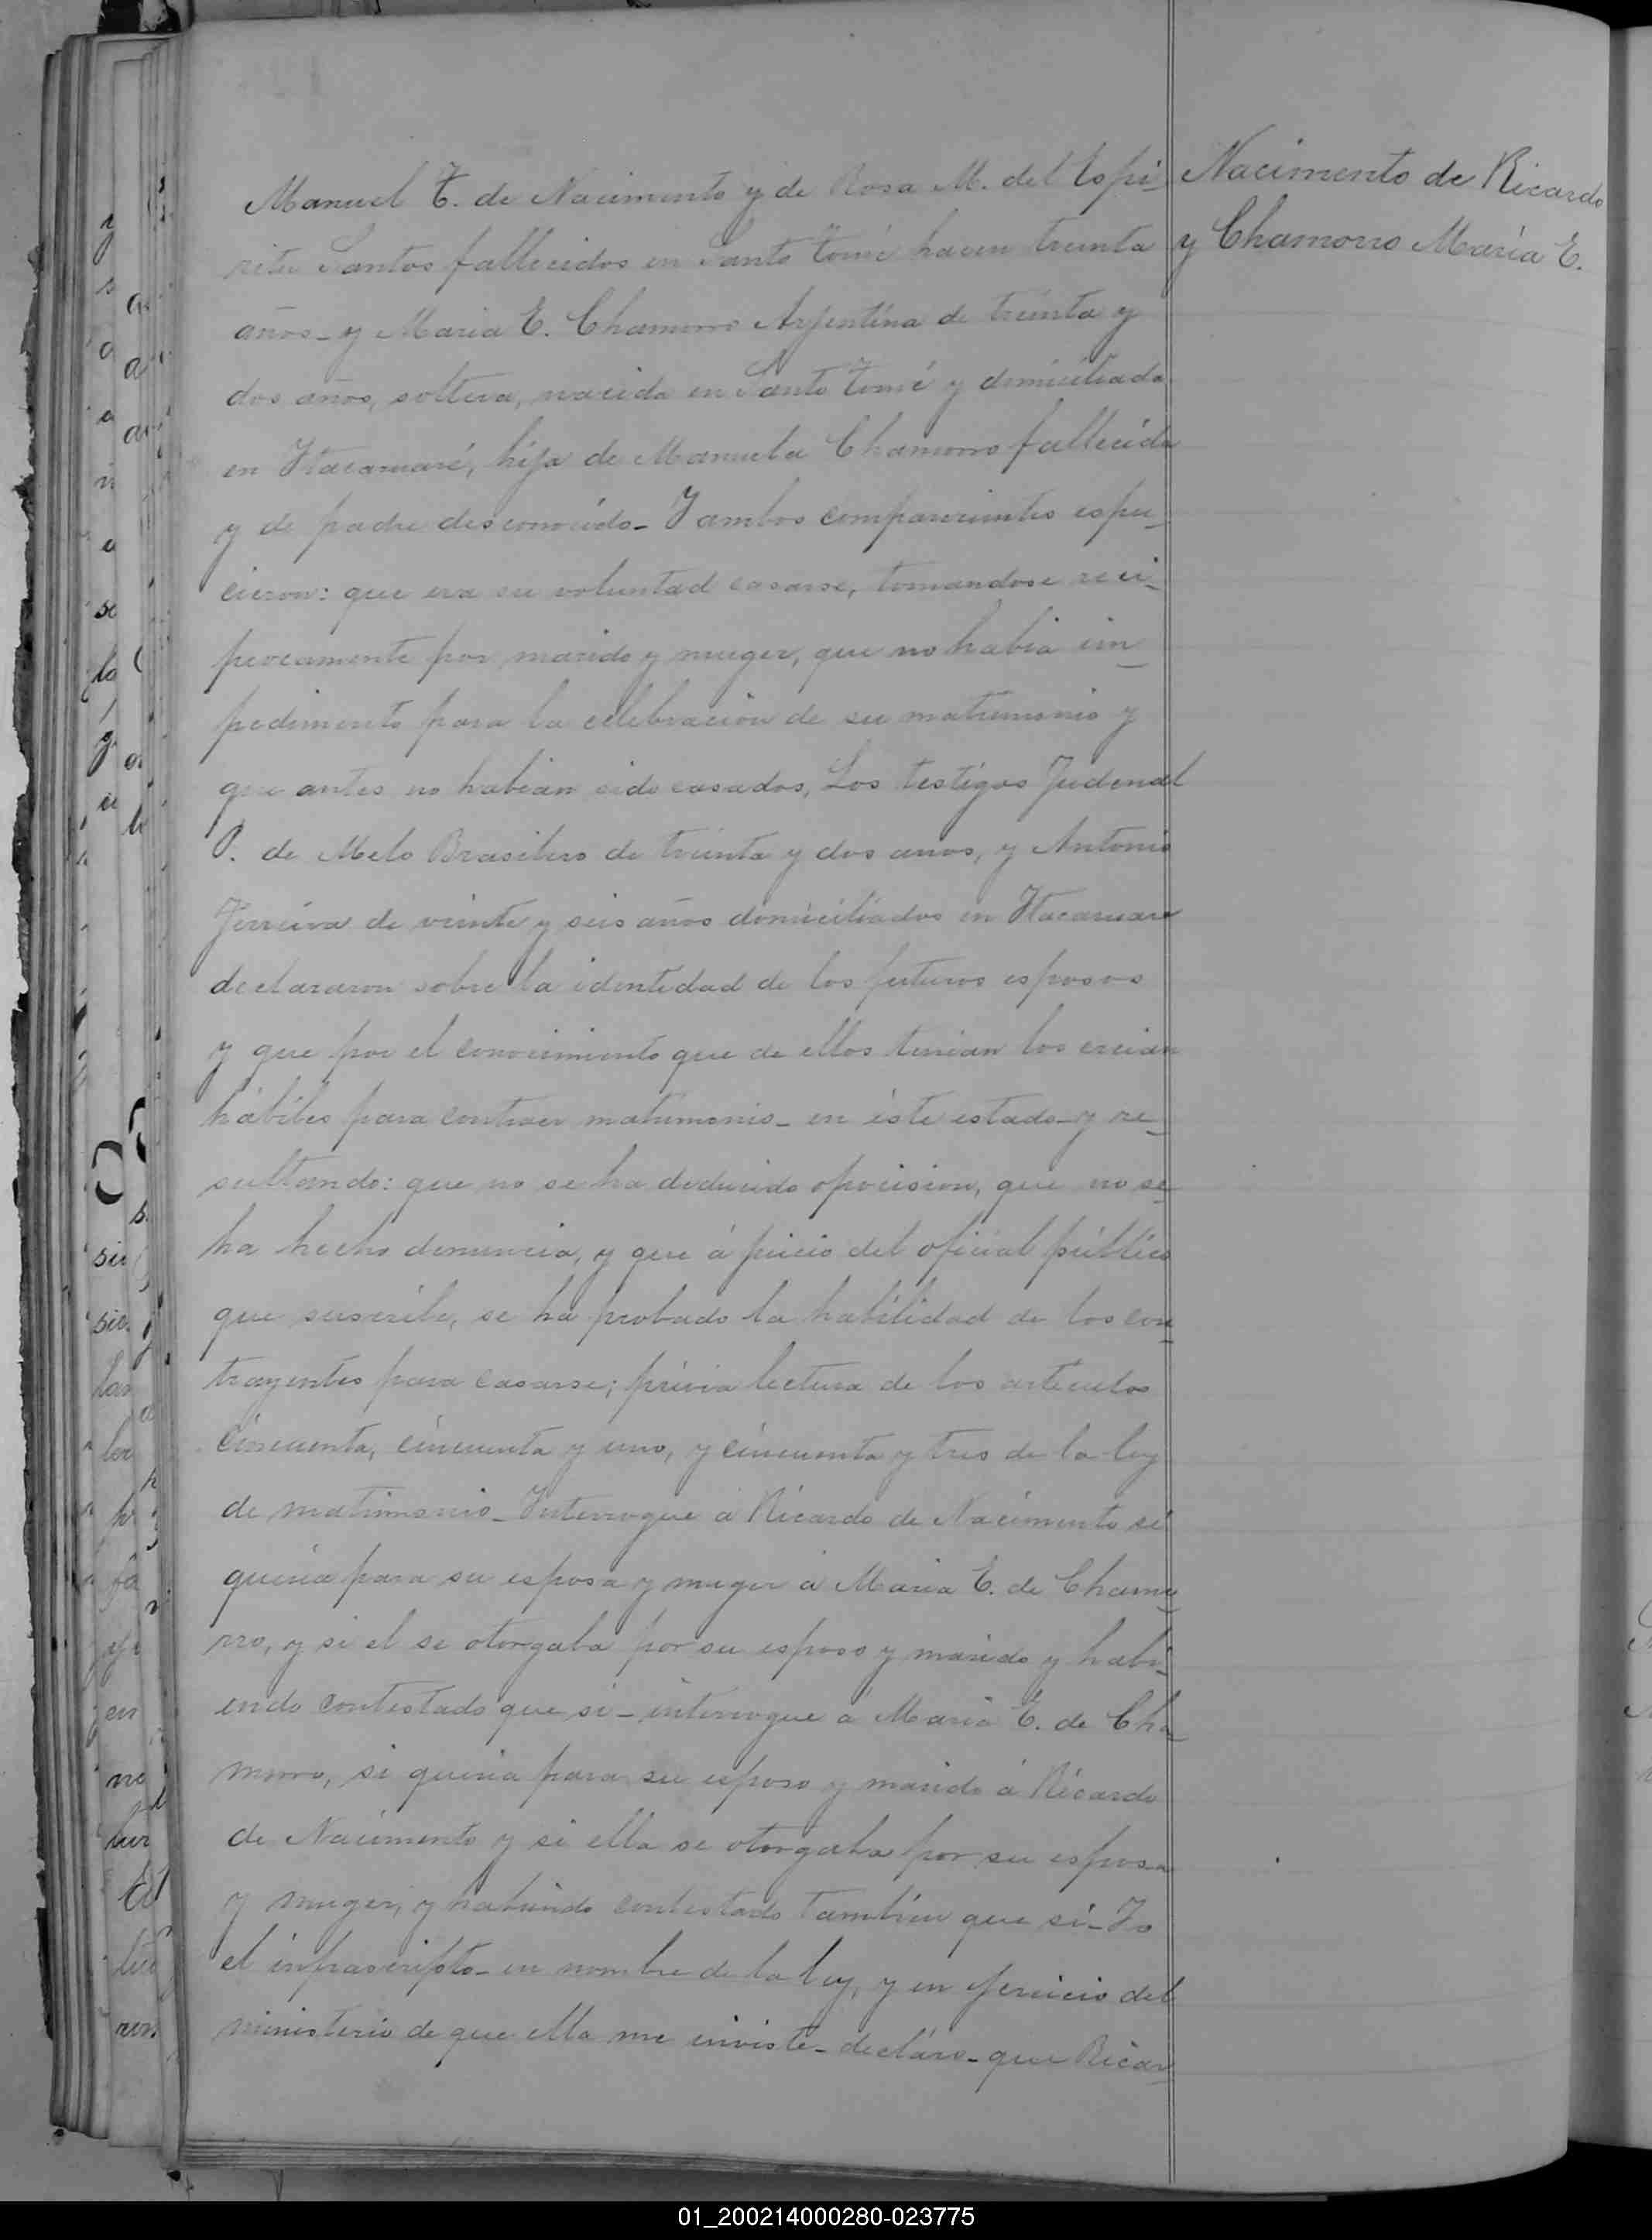 Nacimento de Ricardo
y Chamorro María E.
Manuel T. de Nacimento y de Rosa M. del Espi_
ritu Santos fallecidos en Santo Tomé hacen treinta
años_ y Maria E. Chamorro Arjentína de treínta y
dos años, soltera, nacida en Santo Tomé y domiciliada
en Itacaruaré, hija de Manuela Chamorro fallecída
y de padre desconocído_ Y ambos comparecientes espu_
cieron: que era su voluntad casarse, tomandose reci_
procamente por marido y muger, que no habia im_
pedimento para la celebracion de su matrimonio y
que antes no habian sido casados, Los testígos Judenal
P. de Melo Brasilero de treinta y dos anos, y Antonio
Ferreira de veinte y seis años domiciliados en Itacaruare
declararon sobre la identedad de los futuros esposos
y que por el conocimiento que de ellos tenian los creian
hábiles para contraer matrimonio_ en éste estado_ y re_
sultando: que no se ha deducido oposicion, que no se
ha hecho denuncia, y que á juicio del oficial público
que suscribe, se ha probado la habilidad de los con_
trayentes para casarse; prévia lectura de los articulos
cincuenta, cincuenta y uno, y cincuenta y tres de la ley
de matrimonio_ Interrogue á Ricardo de Nacimento si
queria para su esposa y muger á Maria E. de Chamo_
rro, y si el se otorgaba por su esposo y marido y habi_
endo contestado que si_ interrogue á Maria E. de Cha_
morro, si queria para su esposo y marido á Ricardo
de Nacimento y si ella se otorgaba por su esposa
y muger, y habiendo contestado tambien que si_ Yo
el infrascripto_ en nombre de la ley, y en ejercicio del
ministerio de que ella me inviste_ decláro_ que Ricar_
01_200214000280-023775